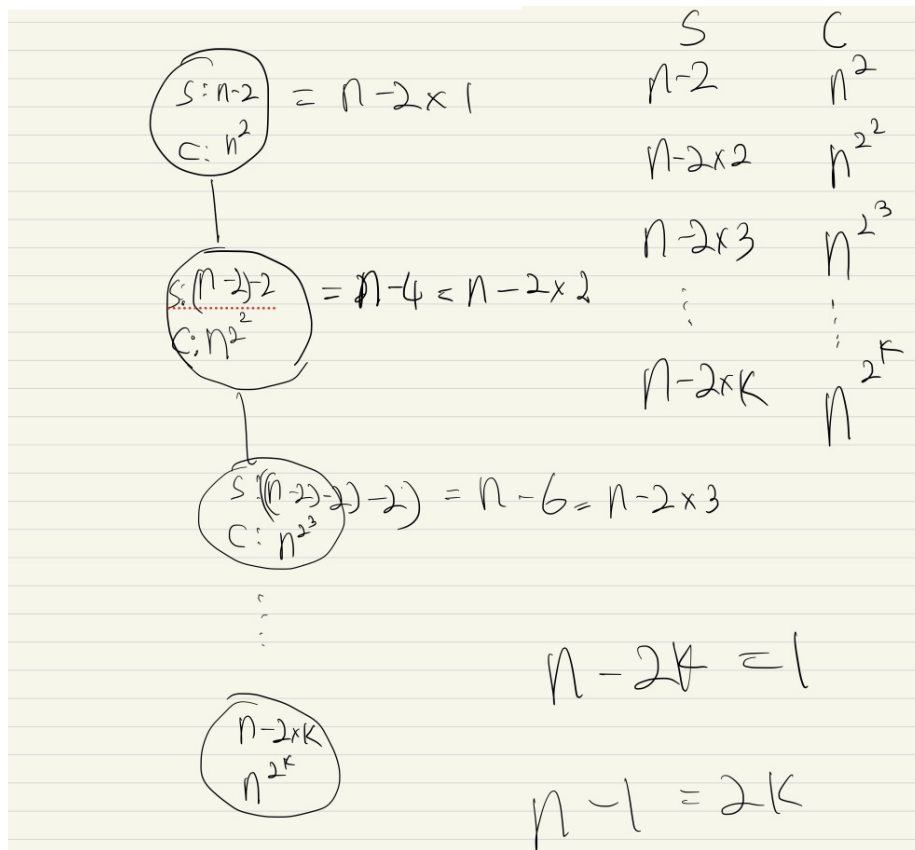 S: n-2 = n-2×1
C: n²
S: (n-2)-2 = n-4 = n-2×2
C: n^2^2
S: ((n-2)-2)-2) = n-6 = n-2×3
C: n^2^3
⋮
n-2×K
n^2^K
S C
n-2 n²
n-2×2 n^2^2
n-2×3 n^2^3
⋮ ⋮
n-2×K n^2^K
n-2K = 1
n-1 = 2K